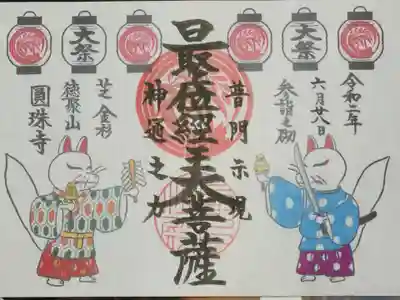 大祭
大祭
令和二年
六月廿八日
参詣之砌
普門示現
最上位經王大菩薩
神通之力
芝金杉
徳聚山
圓珠寺